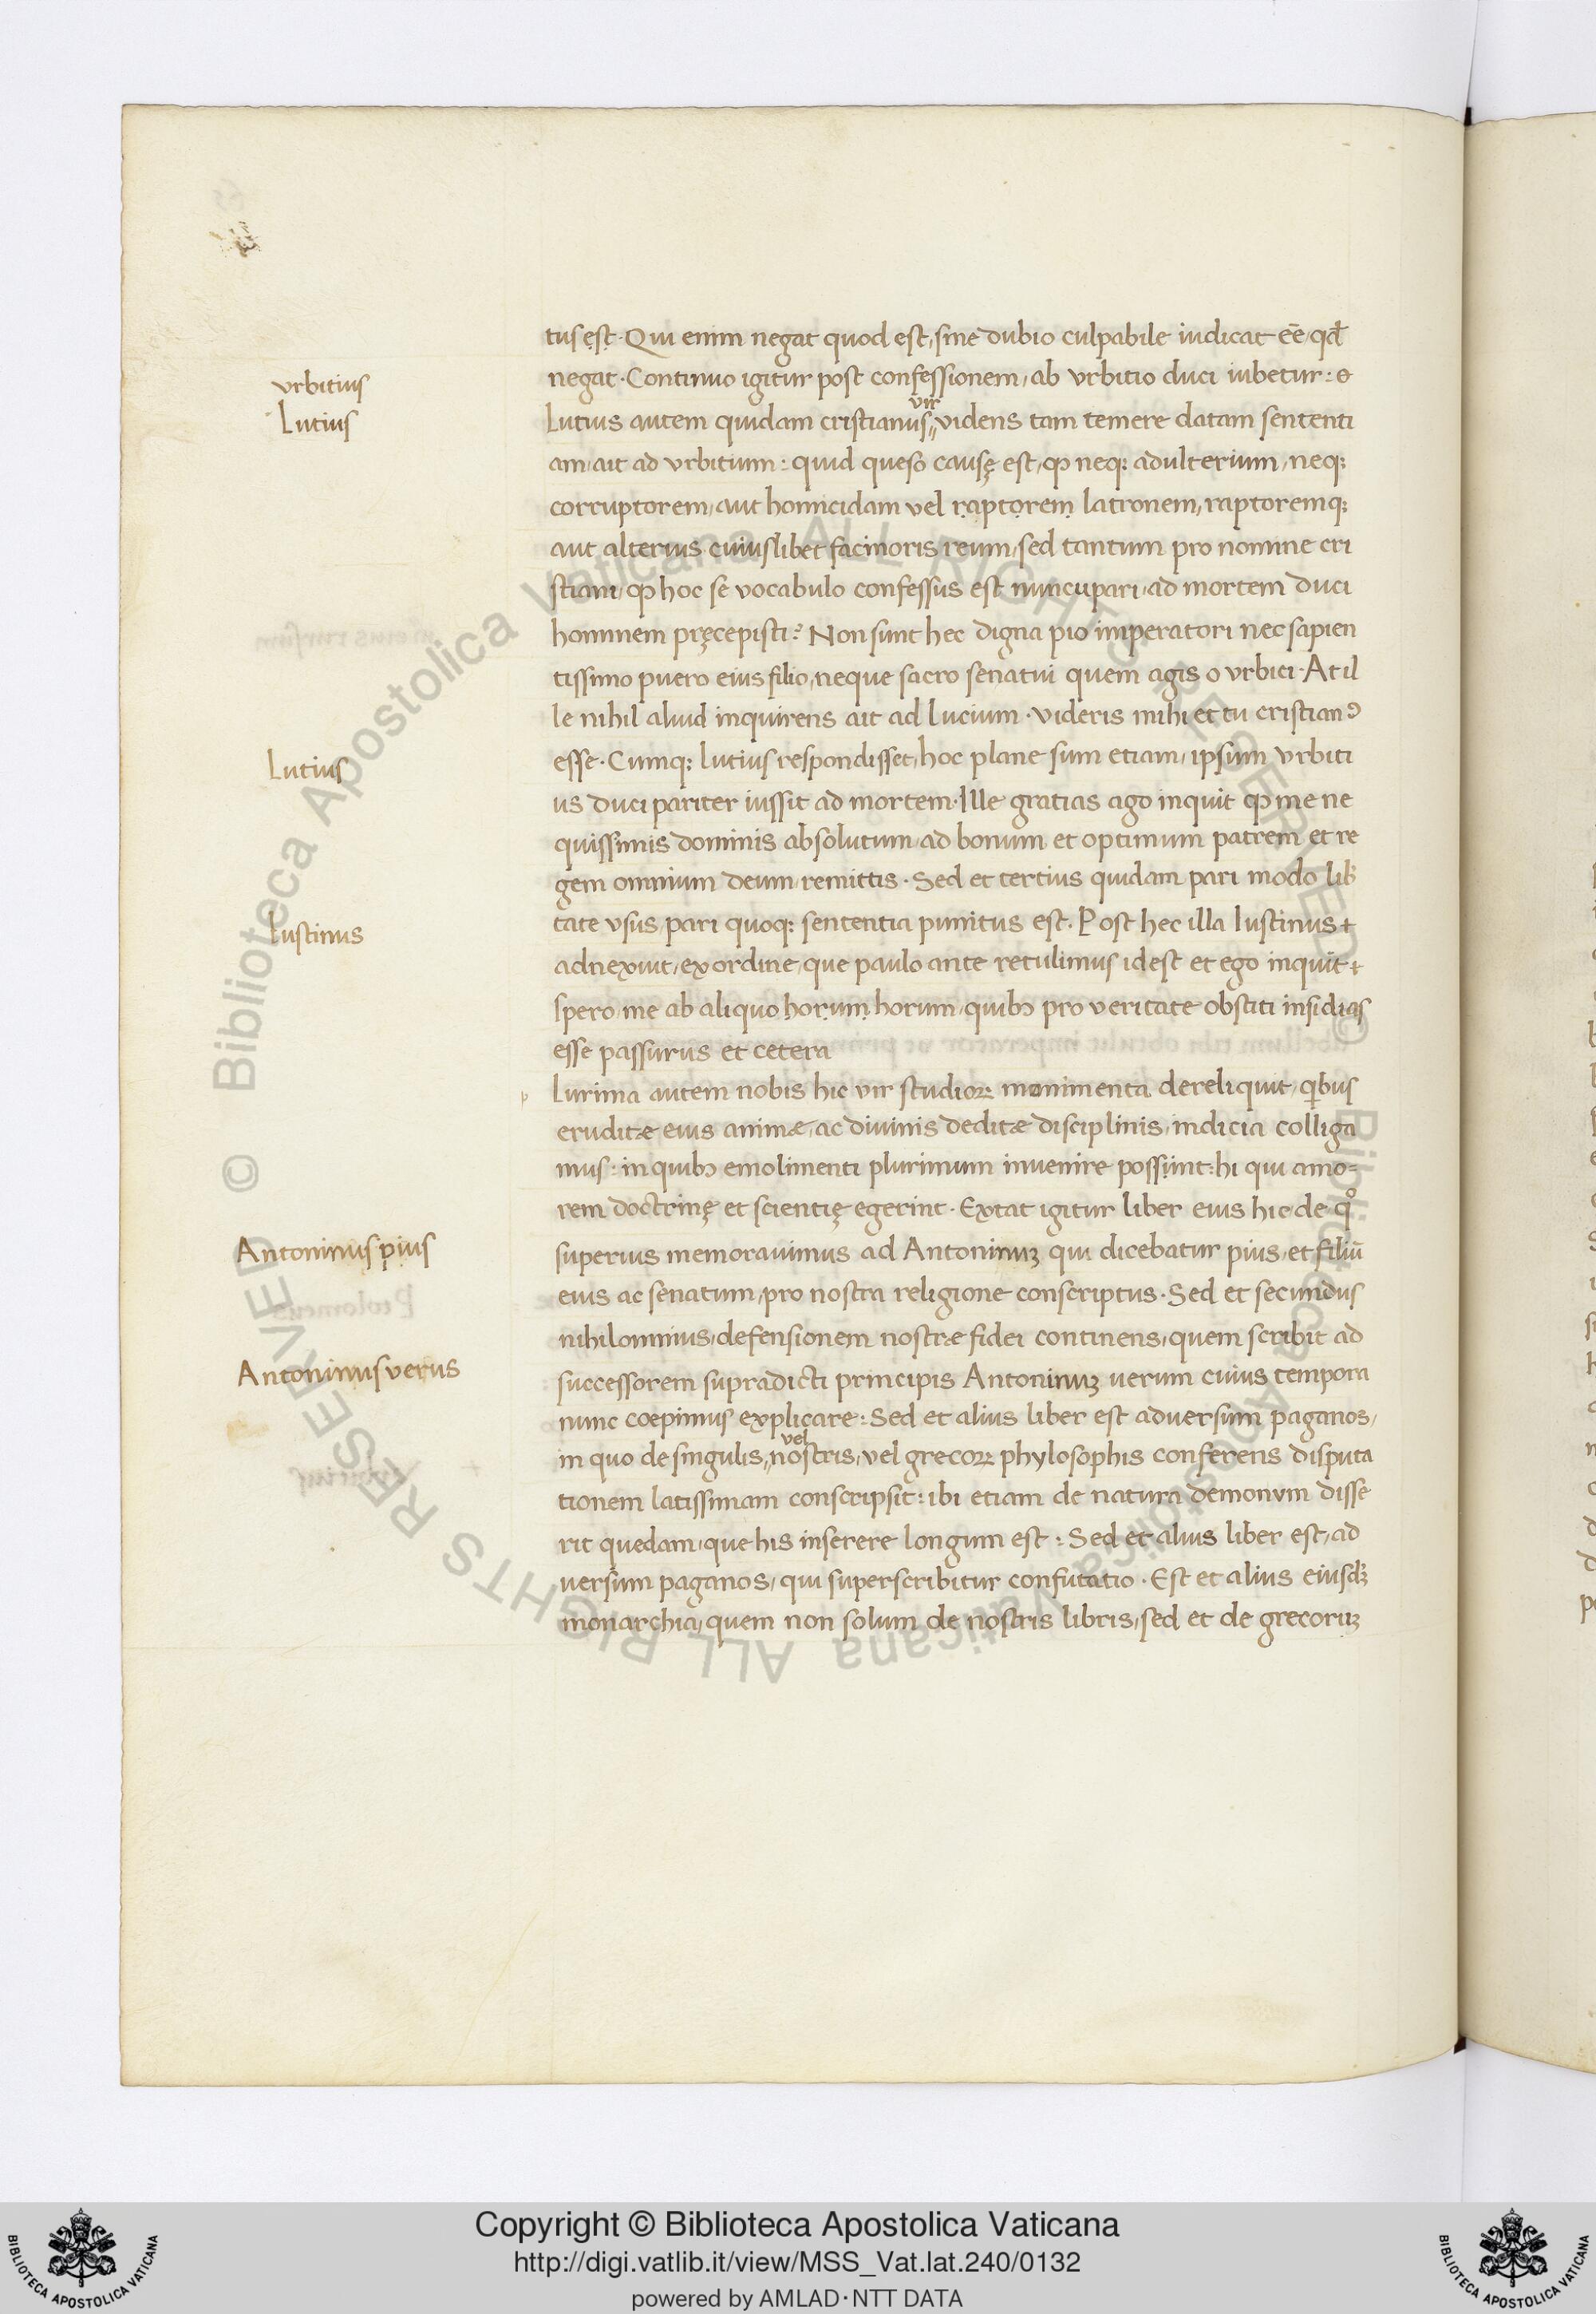 tus est. Qui enim negat quod est, sine dubio culpabile iudicat eē, qd
negat. Continuo igitur post confessionem, ab vrbitio duci iubetur: &
vrbitius
vir
Lutius autem quidam cristianus, videns tam temere datam sententi
Lutius
am, ait ad vrbitium: quid queso causę est, ꝙ neqꝫ adulterium, neqꝫ
corruptorem, aut homicidam vel raptorem latronem, raptoremqꝫ
aut alterius cuiuslibet facinoris reum, sed tantum pro nomine cri
stiani, ꝙ hoc se vocabulo confessus est nuncupari, ad mortem duci
hominem pręcepisti? Non sunt hec digna pio imperatori nec sapien
tissimo puero eius filio, neque sacro senatui quem agis o vrbici. At il
le nihil aliud inquirens ait ad lucium. videris mihi et tu cristianꝰ
esse. Cumqꝫ lutius respondisset, hoc plane sum etiam, ipsum vrbiti
Lutius
us duci pariter iussit ad mortem. Ille gratias ago inquit ꝙ me ne
quissimis dominis absolutum, ad bonum et optimum patrem et re
gem omnium deum, remittis. Sed et tertius quidam pari modo lib̾
tate vsus, pari quoqꝫ sententia punitus est. Post hec illa Iustinus +
Iustinus
adnexuit, ex ordine, que paulo ante retulimus idest et ego inquit +
spero, me ab aliquo horum horum, quibꝫ pro veritate obstiti insidias
esse passurus et cetera
p lurima autem nobis hic vir studioꝝ monimenta dereliquit, qibus
eruditæ eius animæ, ac diuinis deditæ disciplinis, indicia colliga
mus: in quibꝫ emolimenti plurimum invenire possunt: hi qui amo=
rem doctrinę et scientię egerint. Extat igitur liber eius hic de qͦ
superius memorauimus ad Antoninuꝫ qui dicebatur pius, et filiū
Antoninus pius
eius ac senatum, pro nostra religione conscriptus. Sed et secundus
nihilominus, defensionem nostræ fidei continens, quem scribit ad
successorem supradicti principis Antoninuꝫ uerum cuius tempora
Antoninus verus
nunc coepimus explicare: Sed et alius liber est adversum paganos,
vel
in quo de singulis, nostris, vel grecoꝝ phylosophis conferens disputa
tionem latissimam conscripsit: ibi etiam de natura demonvm disse
rit quedam, que his inserere longum est: Sed et alius liber est, ad
uersum paganos, qui superscribitur confutatio. Est et alius eiusdꝫ
monarchia, quem non solum de nostris libris, sed et de grecoruꝫ
Copyright © Biblioteca Apostolica Vaticana
http://digi.vatlib.it/view/MSS_Vat.lat.240/0132
powered by AMLAD·NTT DATA
BIBLIOTECA APOSTOLICA VATICANA
BIBLIOTECA APOSTOLICA VATICANA
© Biblioteca Apostolica Vaticana ALL RIGHTS RESERVED
© Biblioteca Apostolica Vaticana ALL RIGHTS RESERVED